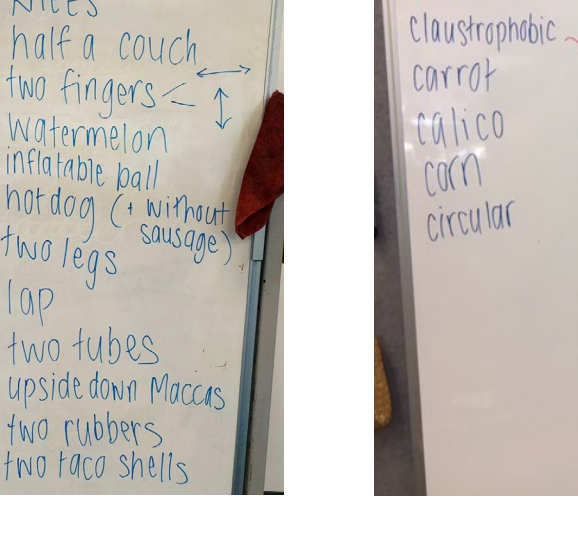 half a couch
two fingers <
watermelon
inflatable ball
hotdog (+ without
sausage)
two legs
lap
two tubes
upside down Maccas
two rubbers
two taco shells
claustrophobic
carrot
calico
corn
circular